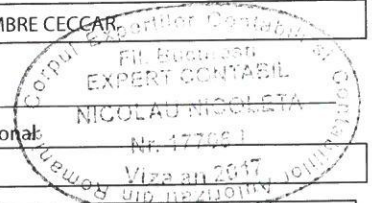 MBRE CECCAR
Corpul Experţilor Contabili şi Contabililor Autorizaţi din România
Fil. Bucureşti
EXPERT CONTABIL
NICOLAU NICOLETA
onal:
Viza an 2017